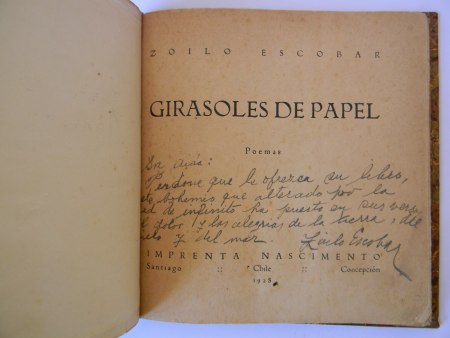 ZOILO ESCOBAR
GIRASOLES DE PAPEL
Poemas
Perdone que le ofrezca su libro,
bohemio que alterado por la
de infinito ha puesto en sus
dolor y las alegrías de la tierra, del
y del mar. Zoilo Escobar
IMPRENTA NASCIMENTO
Santiago :: Chile :: Concepción
1928